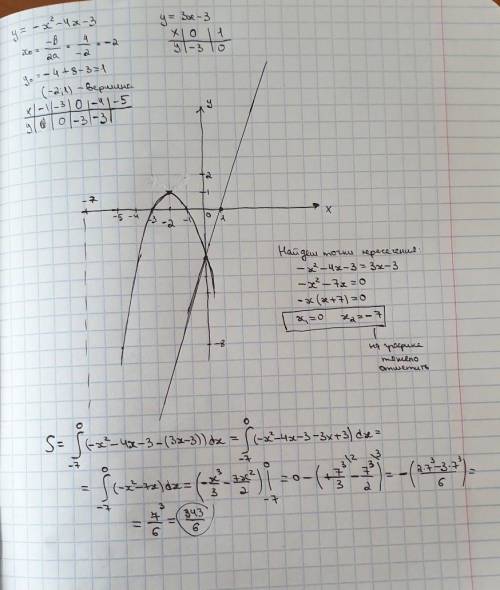 y = -x² - 4x - 3
x₀ = -b/2a = 4/-2 = -2
y₀ = -4 + 8 - 3 = 1
(-2, 1) - вершина
x | -1 | -3 | 0 | -4 | -5
y | 0 | 0 | -3 | -3 |
y = 3x - 3
x | 0 | 1
y | -3 | 0
y
2
1
-7 -5 -4 -3 -2 -1 0 1 x
-8
Найдем точки пересечения:
-x² - 4x - 3 = 3x - 3
-x² - 7x = 0
-x(x+7) = 0
x₁ = 0 x₂ = -7
на графике
тяжело
отметить
S = ∫₋₇⁰ (-x² - 4x - 3 - (3x - 3)) dx = ∫₋₇⁰ (-x² - 4x - 3 - 3x + 3) dx =
= ∫₋₇⁰ (-x² - 7x) dx = (-x³/3 - 7x²/2) |₋₇⁰ = 0 - (+7³/3 - 7³/2) = -(2·7³ - 3·7³ / 6) =
= 7³/6 = 343/6